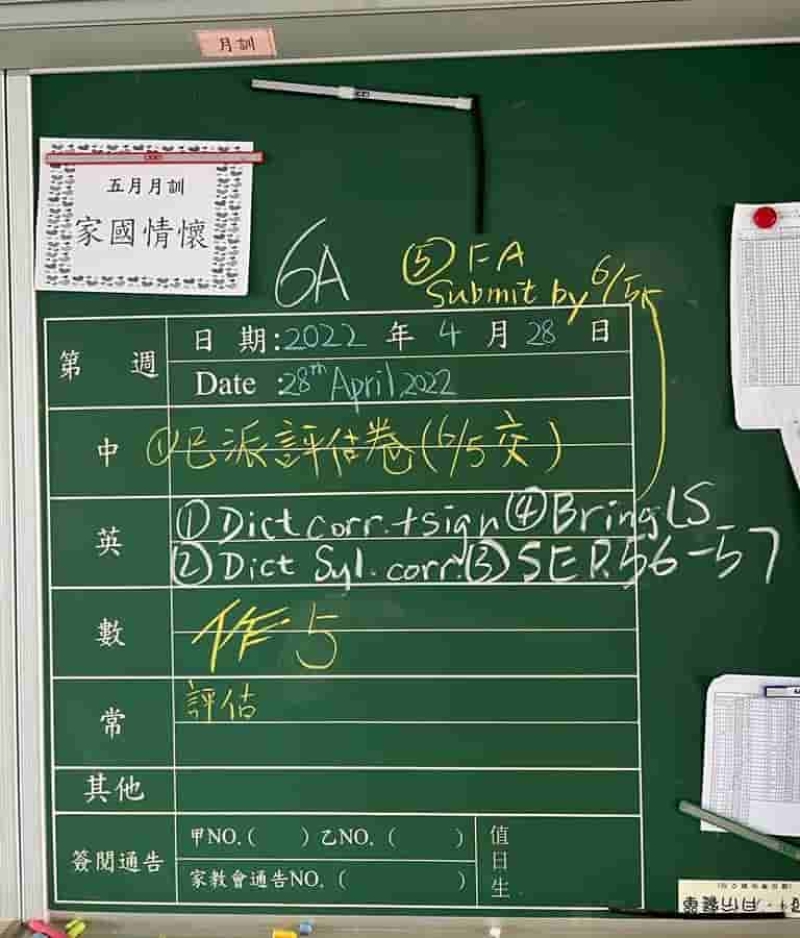 月訓
五月月訓
家國情懷
6A
⑤ FA
Submit by 6/5
第 週
日 期:2022 年 4 月 28 日
Date :28th April 2022
中
①已派評估卷(6/5交)
英
①Dict corr.+sign ④Bring LS
②Dict Syl. corr. ③SE P.56-57
數
作.5
常
評估
其他
簽閱通告
甲NO.( )乙NO.( )
家教會通告NO.( )
值日生